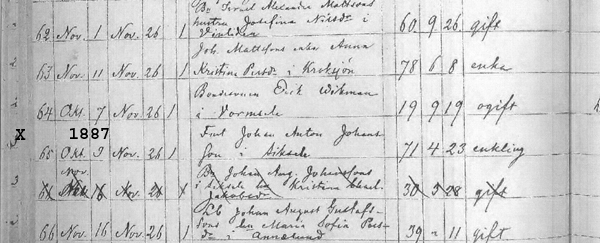 Bo Israel Alexander Mattsons
hustru Josefina Nilsdr i
62 Nov. 1 Nov. 26 1 60 9 26 gift
Joh. Mattssons enka Anna
63 Nov. 11 Nov. 26 1 Kristina Persdr i Kroksjön 78 6 8 enka
Bondesonen Erik Wikman
64 Okt. 7 Nov. 26 1 i Vormsele 19 9 19 ogift
X 1887 Johan Anton Johans
65 Okt. 9 Nov. 26 1 son i Siksele 71 4 23 enkling
Nov. Bo Johan Aug. Johanssons
16 Nov. 26 i Siksele Kristina 30 5 28 gift
Jakobsdr
Johan August Gustafs
66 Nov. 16 Nov. 26 1 sons hu Maria Sofia Pers 39 " 11 gift
dr i Annelund